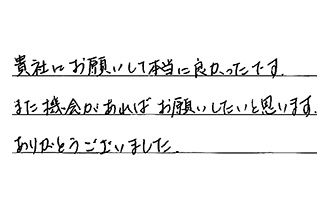 貴社にお願いして本当に良かったです.
また機会があればお願いしたいと思います.
ありがとうございました.